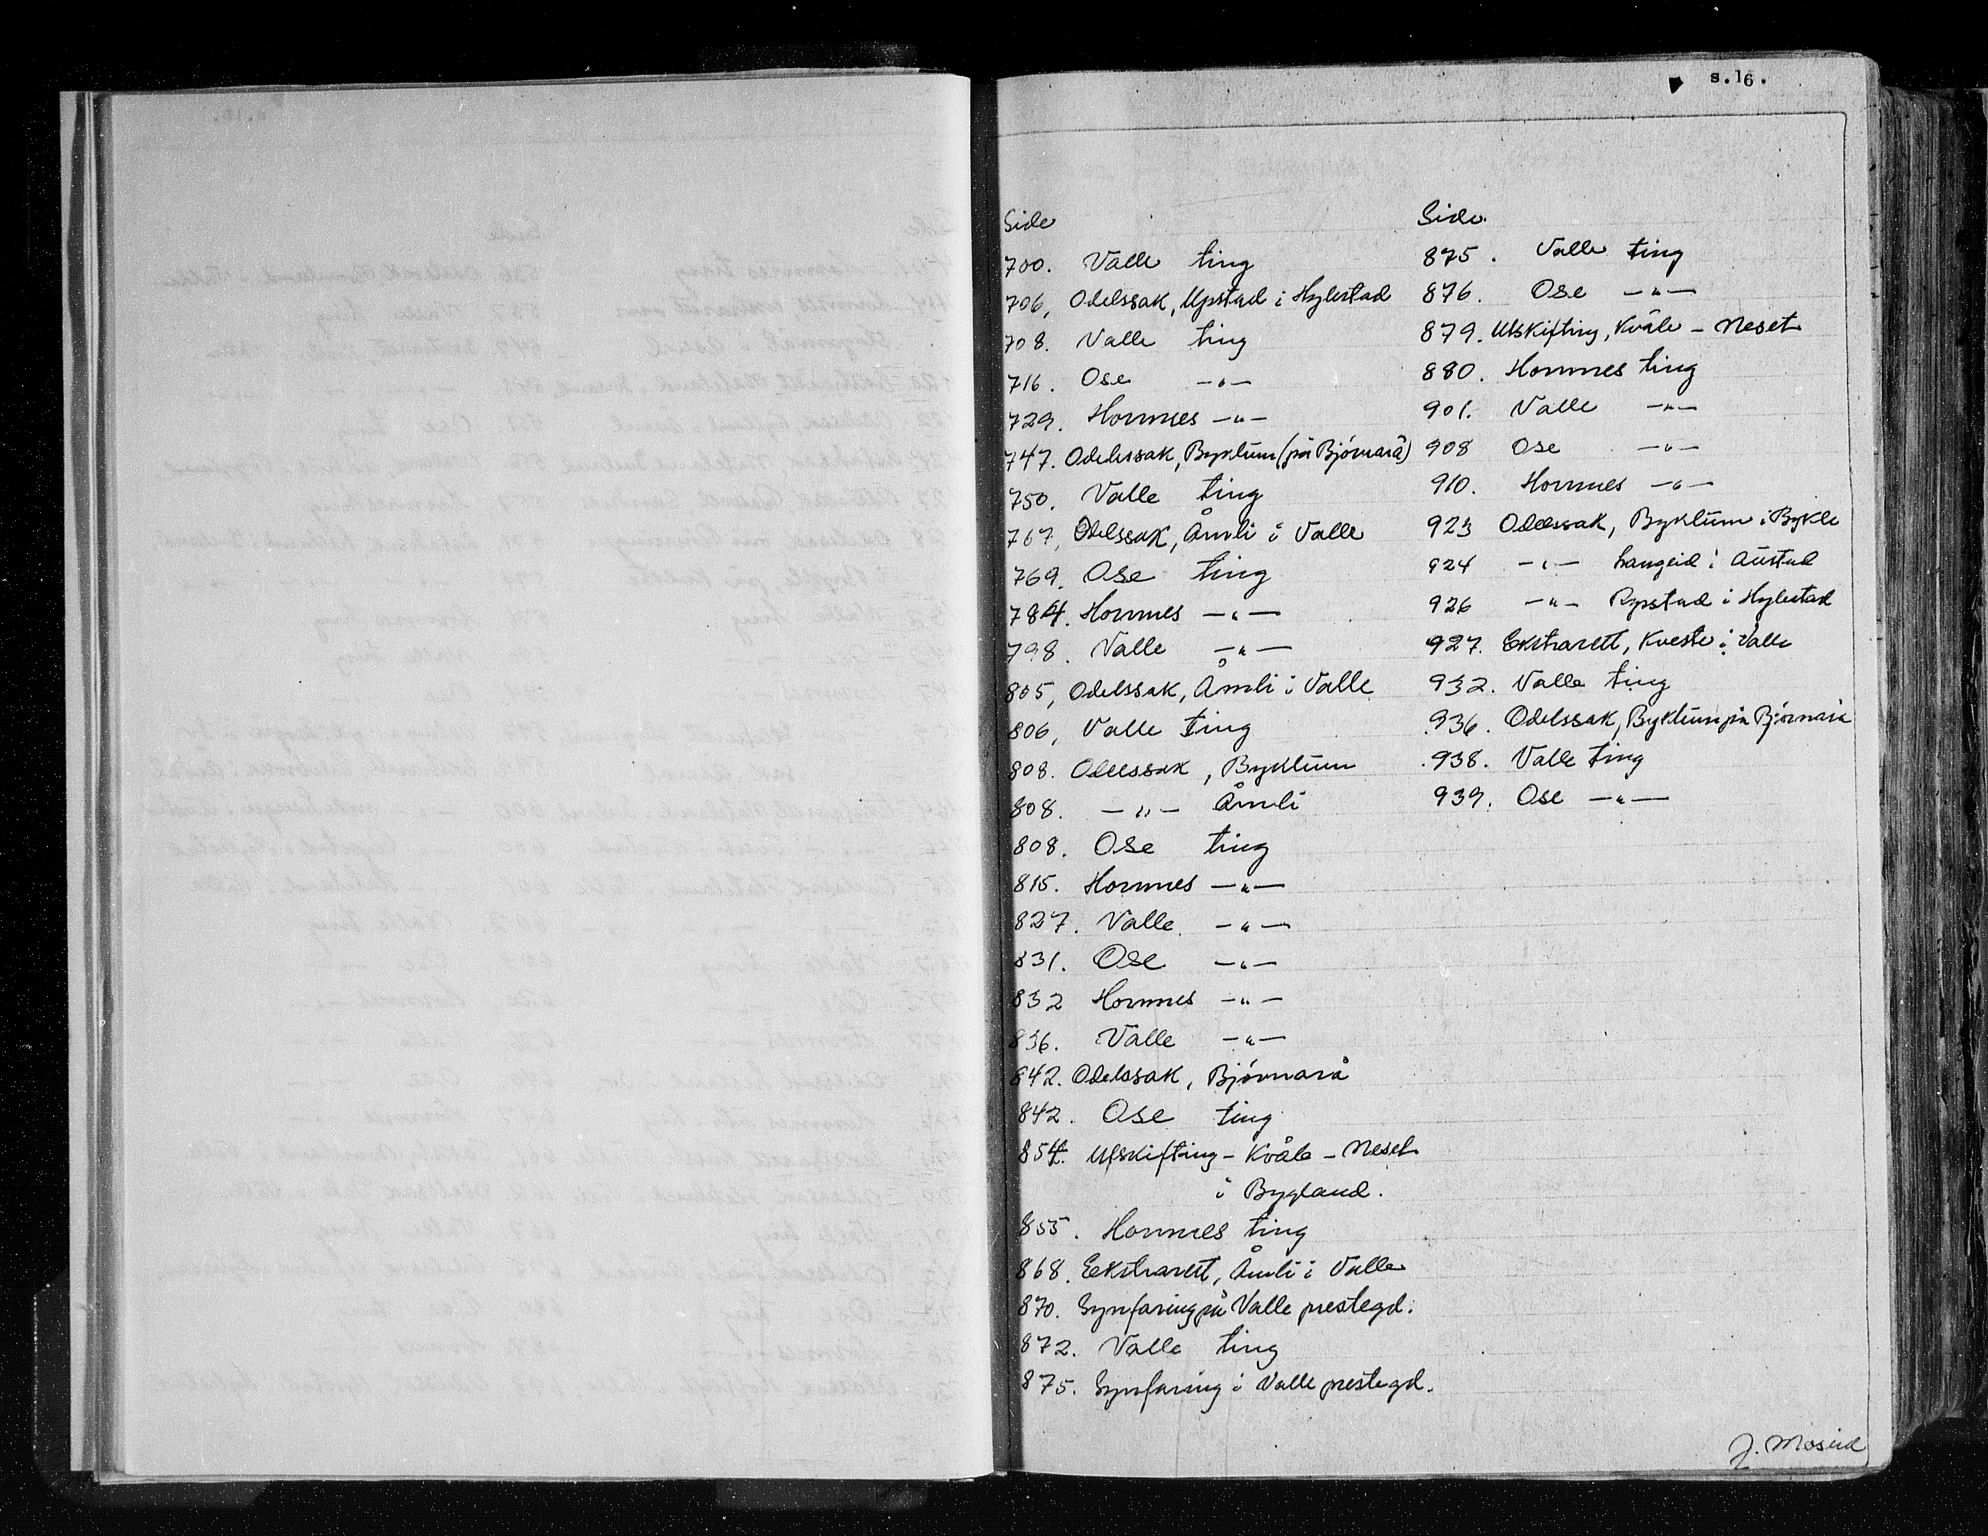 s.16.
Side
700. Valle ting
706, Odelssak, Upstad i Hylestad
708. Valle ting
716. Ose —"—
729. Hornnes —"—
747. Odelssak, Byklum (på Bjørnarå)
750. Valle ting
767, Odelssak, Åmli i Valle
769. Ose ting
784. Hornnes —"—
798. Valle —"—
805, Odelssak, Åmli i Valle
806, Valle ting
808. Odelssak, Byklum
808. —"— Åmli
808. Ose ting
815. Hornnes —"—
827. Valle. —"—
831. Ose —"—
832 Hornnes —"—
836. Valle —"—
842. Odelssak, Bjørnarå
842. Ose ting
854. Utskifting - Kvåle - Neset
i Bygland.
855. Hornnes ting
868. Eekstrarett, Åmli i Valle
870. Synfaring på Valle prestegd.
872. Valle ting
875. Synfaring i Valle prestegd.
Side
875. Valle ting
876. Ose —"—
879. Utskifting, Kvåle - Neset
880. Hornnes ting
901. Valle —"—
908 Ose —"—
910. Hornnes —"—
923 Odelssak, Byklum i Bykle
924 —"— Langeid i Austad
926 —"— Rysstad i Hylestad
927. Ekstrarett, Kveste i Valle
932. Valle ting
936. Odelssak, Byklum på Bjørnarå
938. Valle ting
939. Ose —"—
J. Moseid